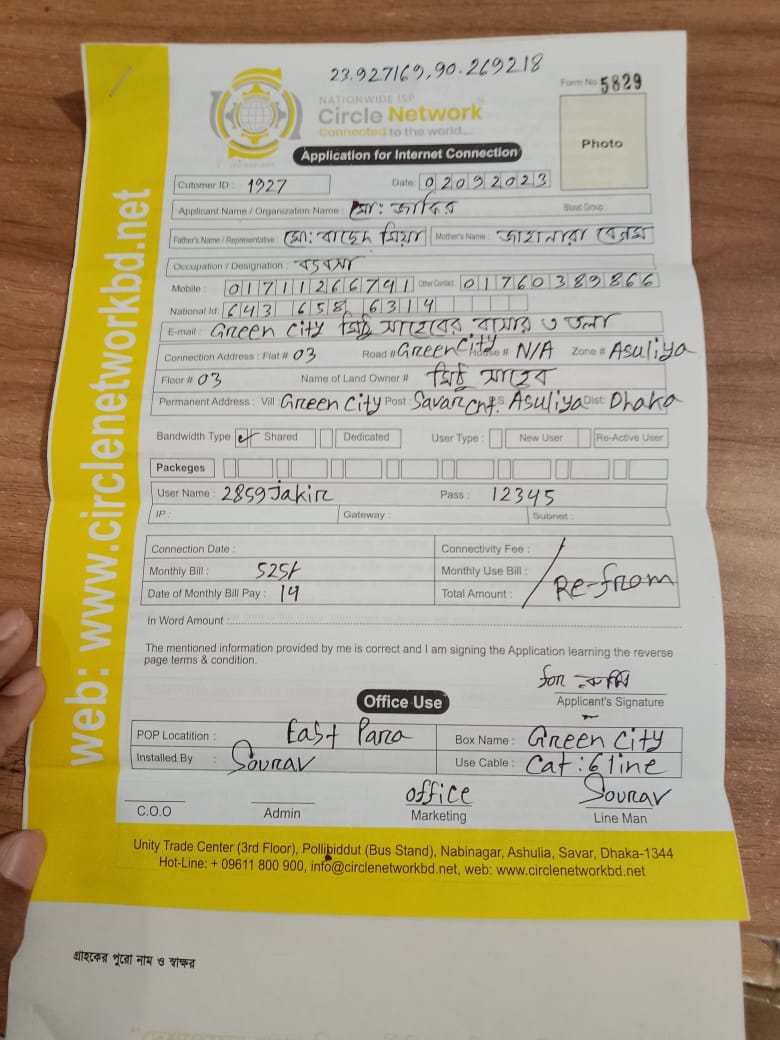 23.927169,90.269218
Form No 5829
NATIONWIDE ISP
Circle Network
Connected to the world...
Photo
Application for Internet Connection
Cutomer ID : 1927 Date: 02092023
Applicant Name / Organization Name : মো: জাকির Blood Group :
Father's Name / Representative : মো: বাছেদ মিয়া Mother's Name : জাহানারা বেগম
Occupation / Designation : ব্যবসা
Mobile : 01711266791 Other Contact 01760389866
National Id: 643 658 6314
E-mail : Green City মিঠু সাহেবের বাসার ৩ তলা
Connection Address : Flat # 03 Road # Green City House # N/A Zone # Asuliya
Floor # 03 Name of Land Owner # মিঠু সাহেব
Permanent Address : Vill Green City Post : Savar Cnt. P.S Asuliya Dist: Dhaka
Bandwidth Type Shared Dedicated User Type : New User Re-Active User
Packeges
User Name : 2859Jakir Pass : 12345
IP : Gateway : Subnet :
Connection Date : Connectivity Fee :
Monthly Bill : 525/- Monthly Use Bill :
Date of Monthly Bill Pay : 14 Total Amount : Re-from
In Word Amount :
The mentioned information provided by me is correct and I am signing the Application learning the reverse
page terms & condition.
for
Applicant's Signature
Office Use
POP Locatition : East Para Box Name : Green City
Installed By : Sourav Use Cable : Cat : 6 line
office Sourav
C.O.O Admin Marketing Line Man
Unity Trade Center (3rd Floor), Pollibiddut (Bus Stand), Nabinagar, Ashulia, Savar, Dhaka-1344
Hot-Line: + 09611 800 900, info@circlenetworkbd.net, web: www.circlenetworkbd.net
web: www.circlenetworkbd.net
গ্রাহকের পুরো নাম ও স্বাক্ষর